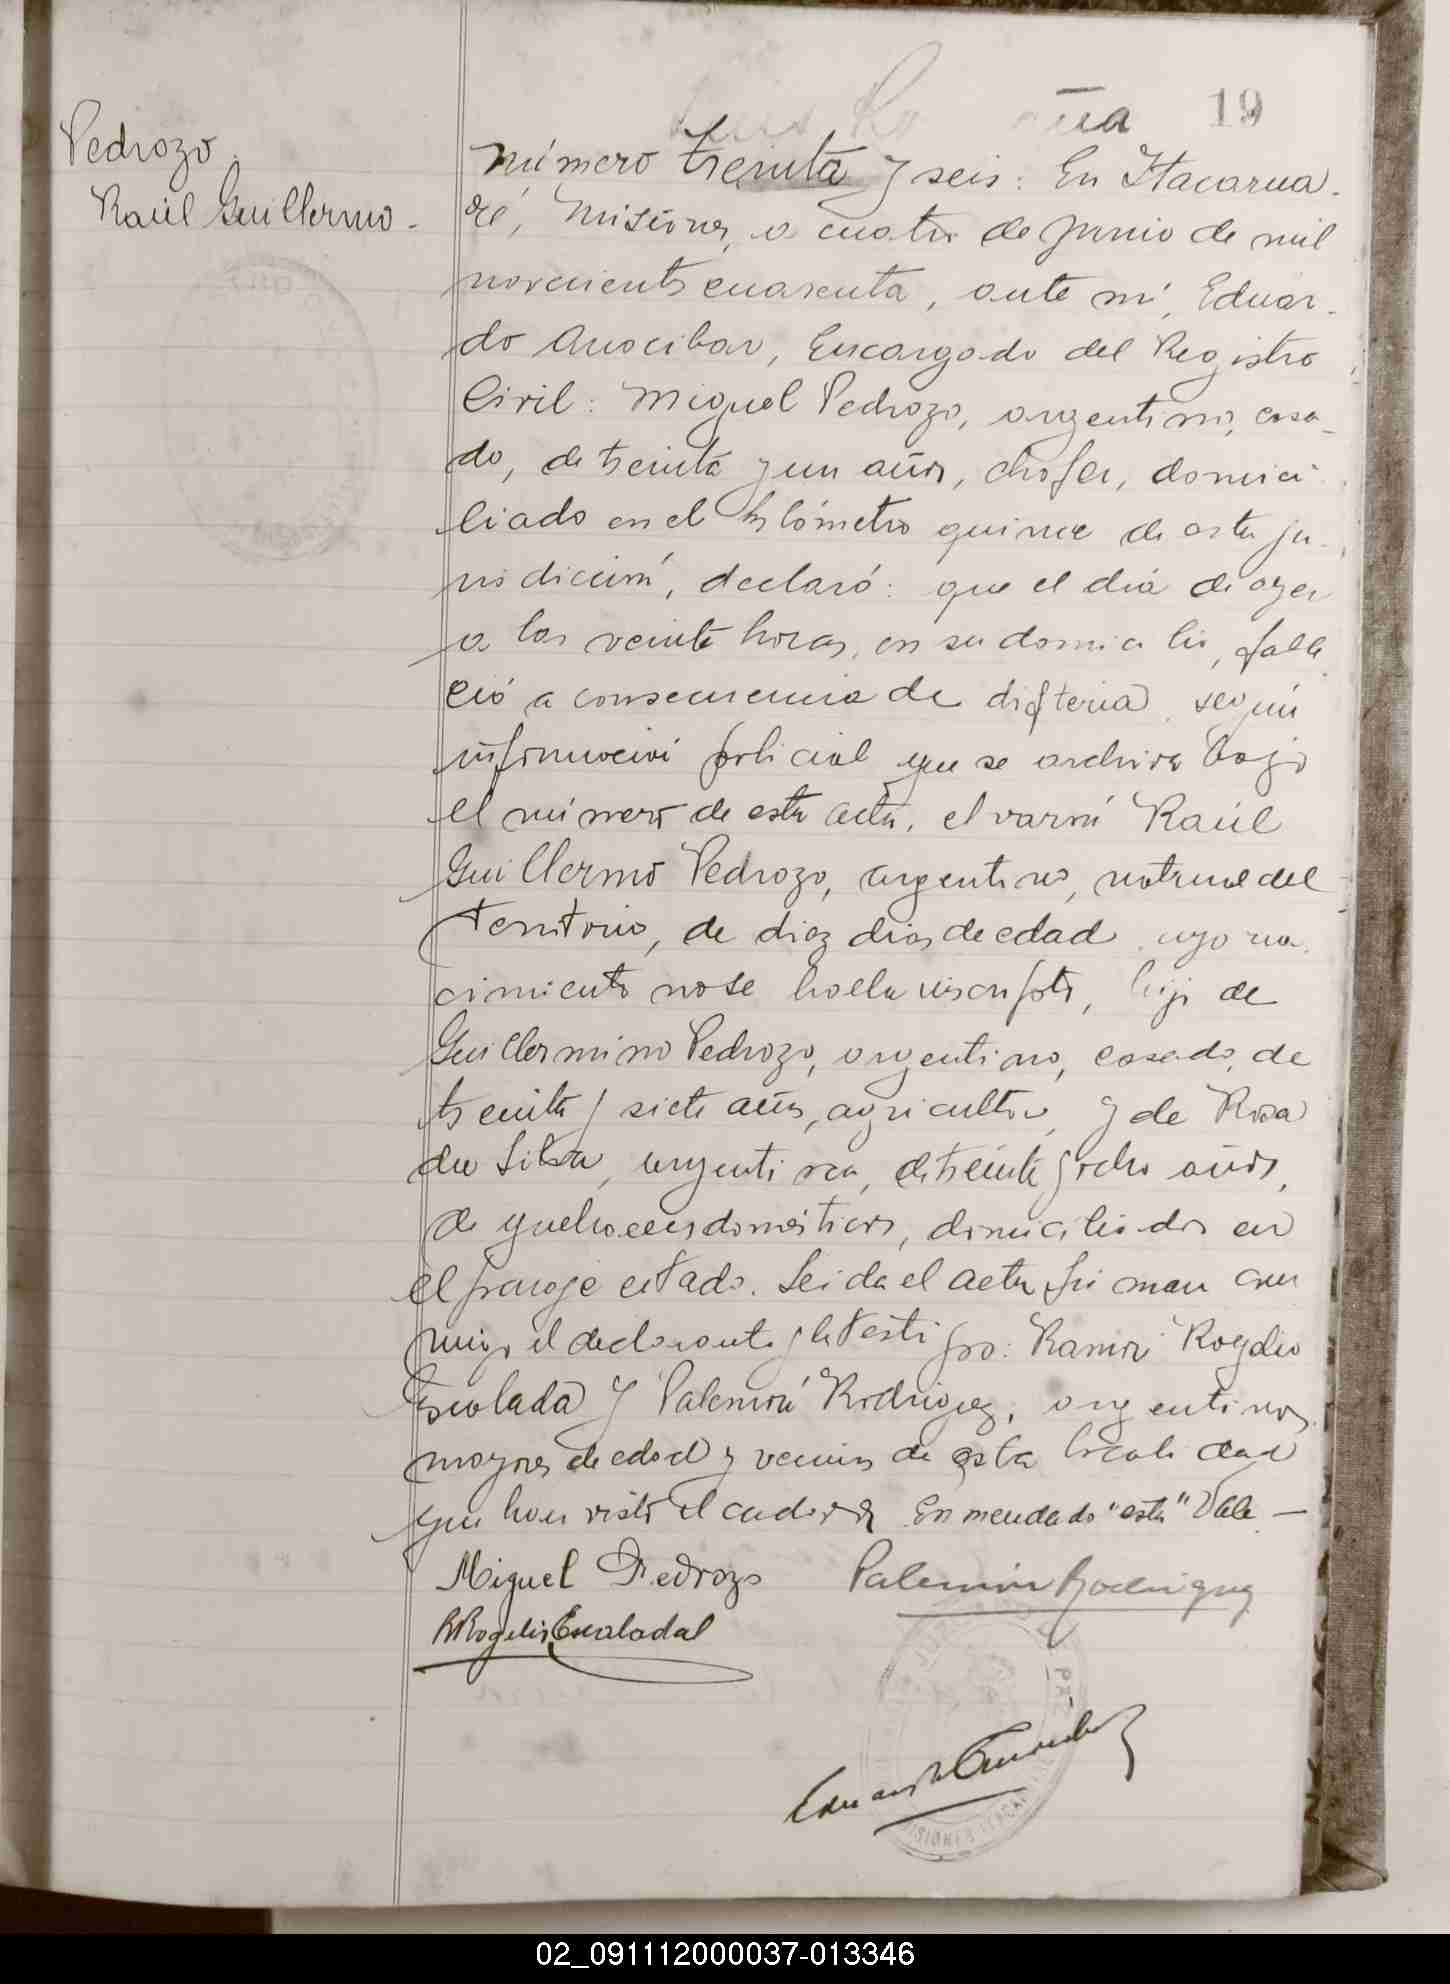 19
Pedrozo
Raúl Guillermo.
Número treinta y seis: En Itacarua-
ré, Misiones, a cuatro de junio de mil
novecientos cuarenta, ante mí, Eduar-
do Anocibar, Encargado del Registro
Civil: Miguel Pedrozo, argentino, casa-
do, de treinta y un años, chofer, domici-
liado en el kilómetro quince de esta ju-
risdicción, declaró: que el día de ayer
a las veinte horas, en su domicilio, falle
ció a consecuencia de difteria, según
información policial que se archiva bajo
el número de esta acta, el varón Raúl
Guillermo Pedrozo, argentino, natural del
Territorio, de diez dias de edad cuyo na-
cimiento no se halla inscripto, hijo de
Guillermino Pedrozo, argentino, casado, de
treinta y siete años, agricultor, y de Rosa
da Silva, argentina, de treinta y ocho años,
de quehaceres domésticos, domiciliados en
el paraje citado. Leida el acta firman con
migo el declarante y los testigos: Ramón Rogelio
Escalada y Palemón Rodriguez, argentinos,
mayores de edad y vecinos de esta localidad
que han visto el cadáver. Enmendado "esta" Vale —
Miguel Pedrozo Palemón Rodriguez
R Rogelio Escaladal
Eduardo Anocibar
02_091112000037-013346